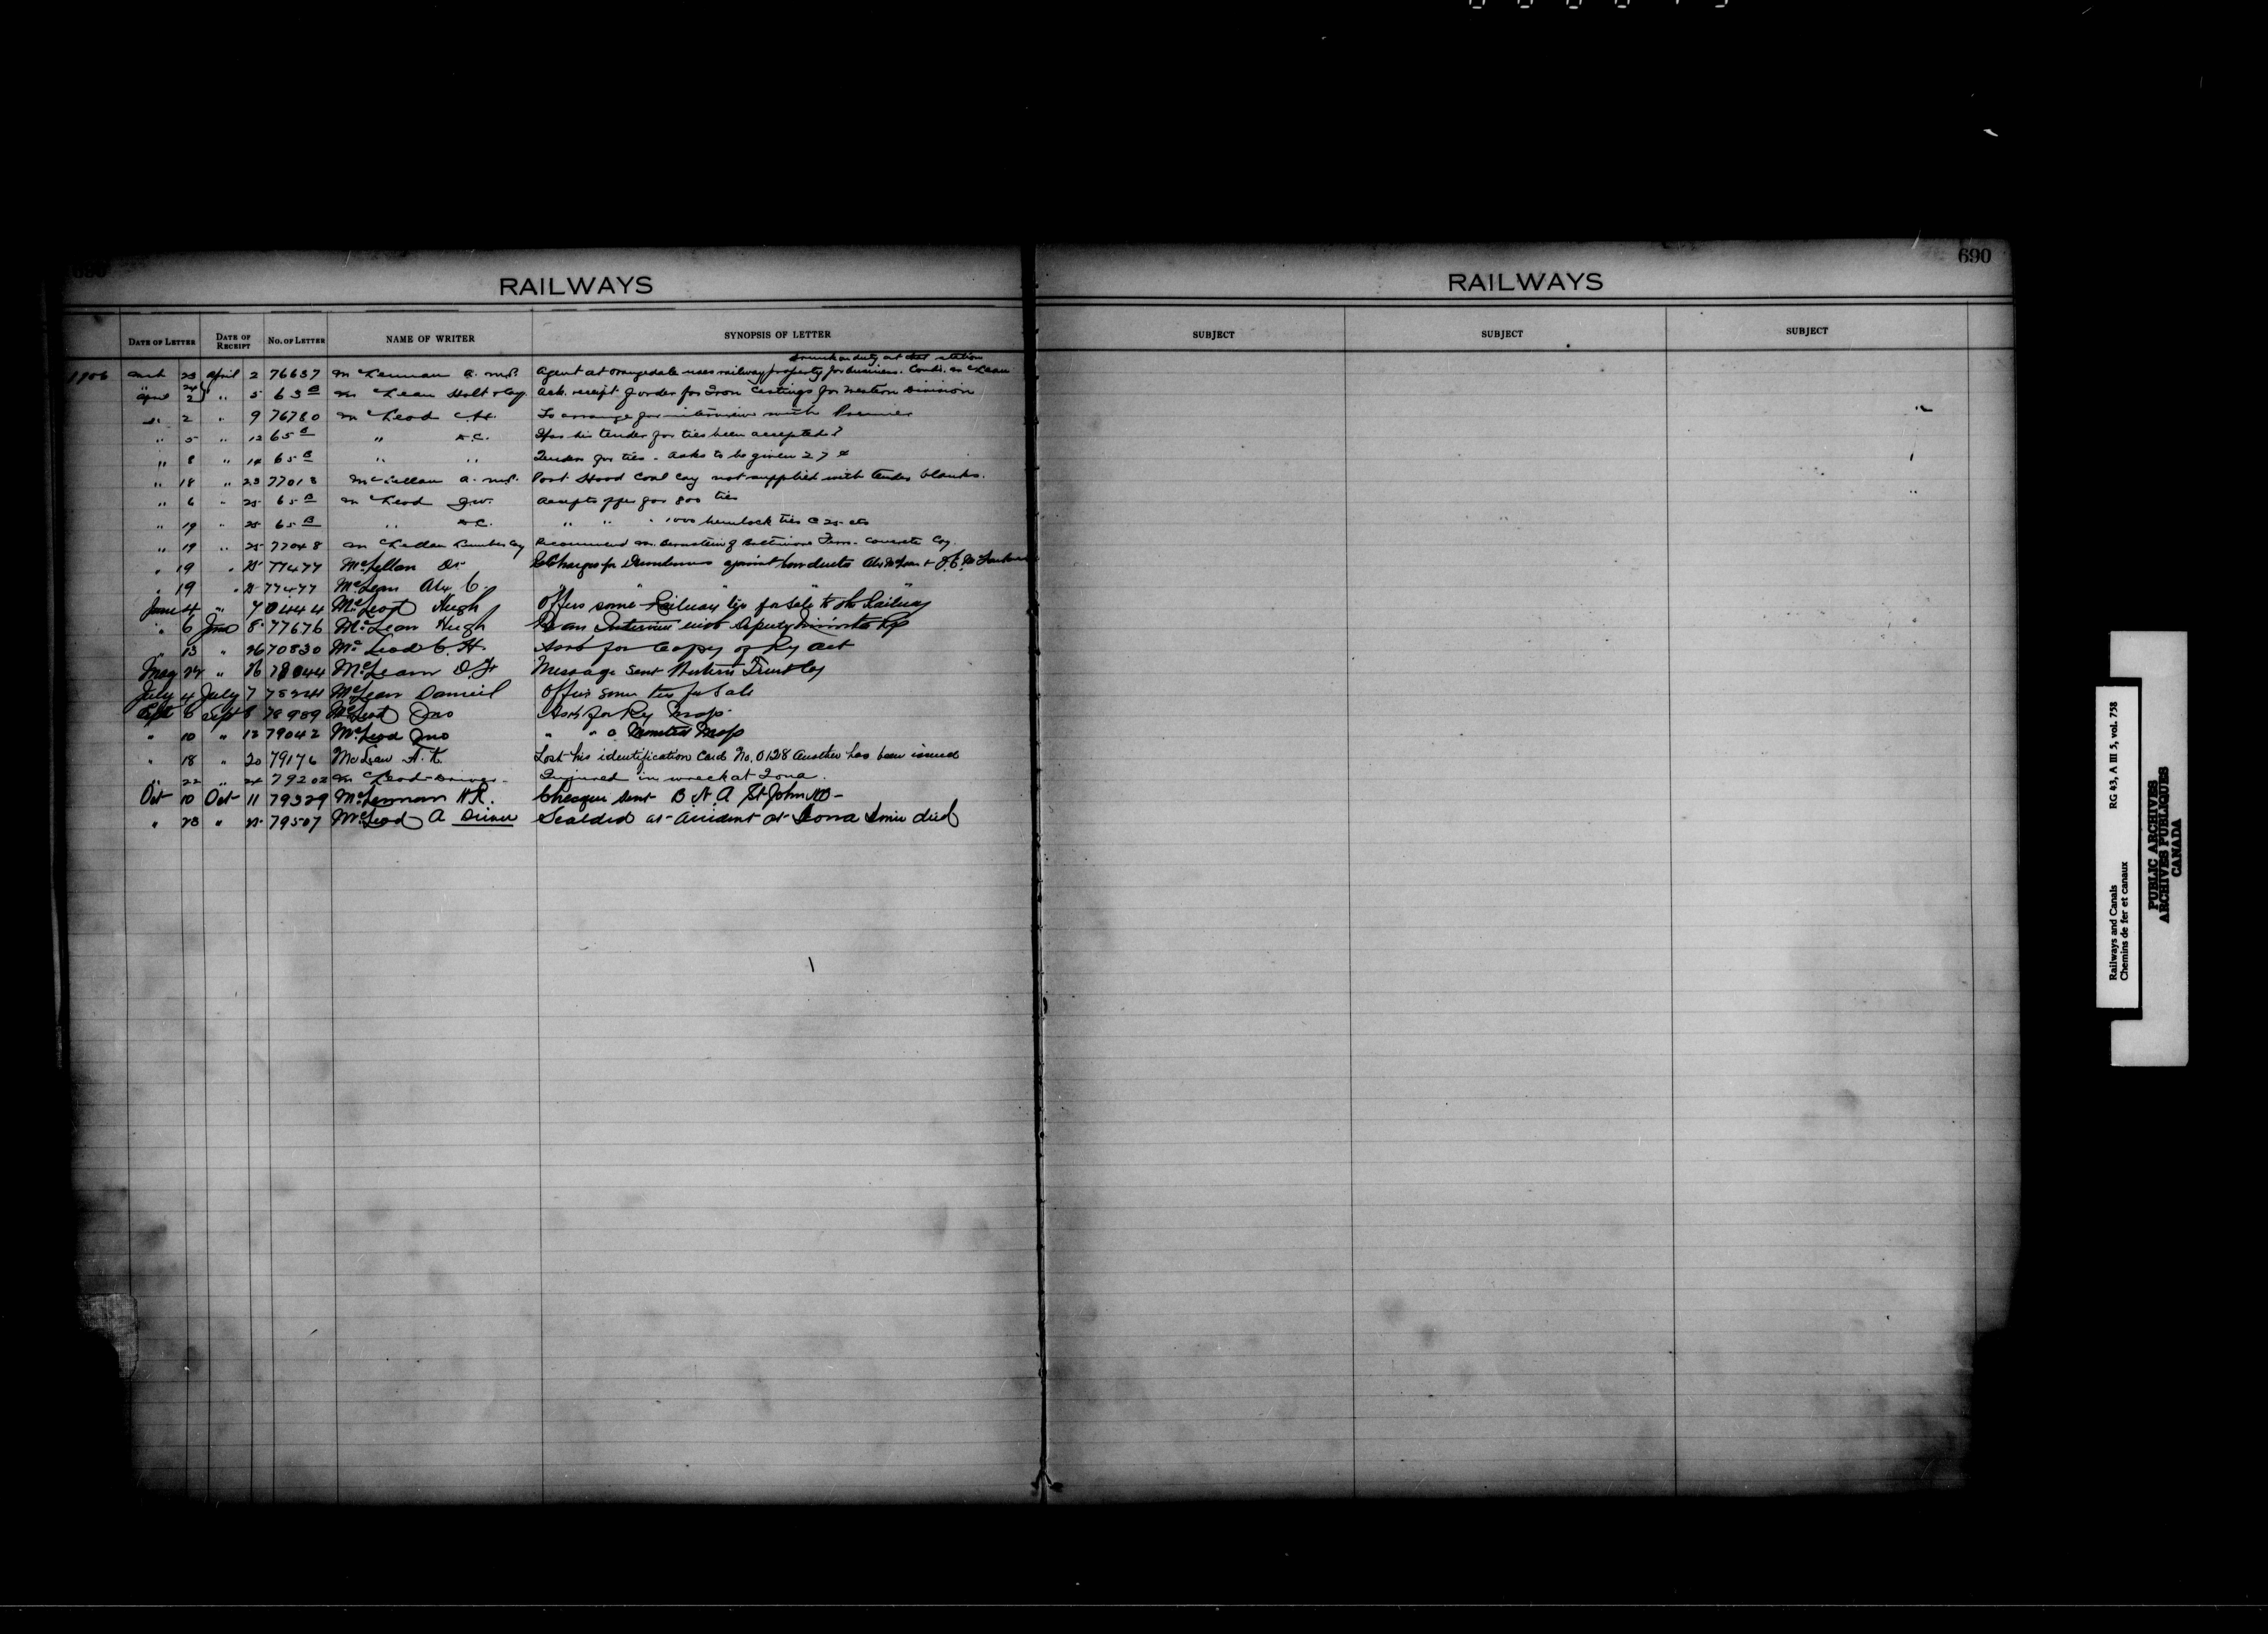 690
RAILWAYS
DATE OF LETTER DATE OF RECEIPT No. OF LETTER NAME OF WRITER SYNOPSIS OF LETTER
drunk on duty at that station
1906 23 April 2 76637 McLennan A. M.P. Agent at Orangedale uses railway property for business. McLean
" 24
April 2 " 5 63 B McLean Holt & Coy. Ack. receipt of order for Iron Castings for Western Division
" 2 " 9 76780 McLeod To arrange for interview with Premier
" 5 " 12 65 B " Has his tender for ties been accepted?
" 8 " 14 65 B " " Tender for ties - asks to be given 27 ¢
" 18 " 23 77018 McLellan A. M.P. Port Hood Coal Coy not supplied with tender blanks.
" 6 " 25 65 B McLeod J.W. Accepts offer for 800 ties
" 19 " 25 65 B " " " " 1000 hemlock ties @ 25 cts
" 19 " 25 77048 McLellan Lumber Coy Recommend Mr. Bernstein of Baltimore Ferro-Concrete Coy.
" 19 " 25 77477 McLellan Dr Charges for Drunkenness against Conductor Alex McLean &
" 19 " 25 77477 McLean Alex C. " " " "
June 4 " 7 McLeod Hugh Offers some Railway ties for sale to the Railway
" 6 June 8 77676 McLean Hugh an Interview with Deputy Minister
" 13 " 26 70830 McLeod C. H. Ask for Copy of Ry Act
May 24 " 26 78044 McLean D. Message sent Trust Coy
July 4 July 7 McLean Daniel Offers some ties for sale
Sept 6 Sept 8 78989 McLeod Jno Ask for Ry Map
" 10 " 12 79042 McLeod Jno " " a Mounted Map
" 18 " 20 79176 McLean A. K. Lost his identification Card No. 0128 Another has been issued
" 22 " 24 79202 McLeod - Driver - Injured in wreck at Iona.
Oct 10 Oct 11 79329 McLennan H.R. Cheque sent B N A St John NB -
" 23 " 25 79507 McLeod A Driver Scalded at accident at Iona since died
690
RAILWAYS
SUBJECT SUBJECT SUBJECT
Railways and Canals RG 43, A III 5, vol. 758
Chemins de fer et canaux
PUBLIC ARCHIVES
ARCHIVES PUBLIQUES
CANADA